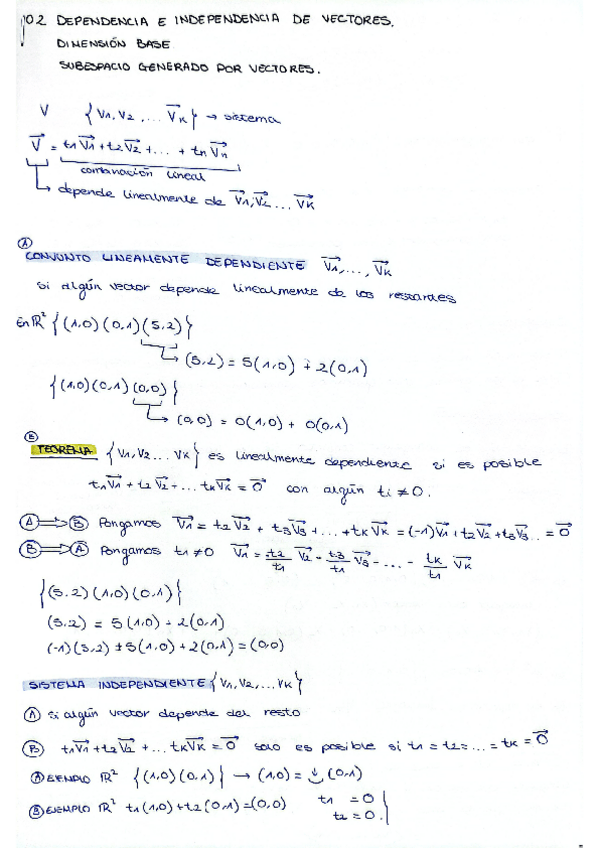 02 DEPENDENCIA E INDEPENDENCIA DE VECTORES.
DIMENSIÓN BASE
SUBESPACIO GENERADO POR VECTORES.
V {V1, V2, ... V⃗k} → sistema
V⃗ = t1V⃗1 + t2V⃗2 + ... + tnV⃗n
combinación lineal
depende linealmente de V⃗1, V⃗2 ... V⃗k
Ⓐ
CONJUNTO LINEAMENTE DEPENDIENTE V⃗1, ..., V⃗k
si algún vector depende linealmente de los restantes
En ℝ² {(1,0)(0,1)(5,2)}
(5,2) = 5(1,0) + 2(0,1)
{(1,0)(0,1)(0,0)}
(0,0) = 0(1,0) + 0(0,1)
Ⓑ
TEOREMA {V1, V2 ... Vk} es linealmente dependiente si es posible
t1V⃗1 + t2V⃗2 + ... tkV⃗k = 0⃗ con algún ti ≠ 0.
Ⓐ ⟹ Ⓑ Pongamos V⃗1 = t2V⃗2 + t3V⃗3 + ... + tkV⃗k = (-1)V⃗1 + t2V⃗2 + t3V⃗3 ... = 0⃗
Ⓑ ⟹ Ⓐ Pongamos t1 ≠ 0 V⃗1 = -t2/t1 V⃗2 - t3/t1 V⃗3 - ... - tk/t1 V⃗k
{(5,2)(1,0)(0,1)}
(5,2) = 5(1,0) + 2(0,1)
(-1)(5,2) + 5(1,0) + 2(0,1) = (0,0)
SISTEMA INDEPENDIENTE {V1, V2, ... Vk}
Ⓐ si algún vector depende del resto
Ⓑ t1V⃗1 + t2V⃗2 + ... tkV⃗k = 0⃗ solo es posible si t1 = t2 = ... = tk = 0⃗
Ⓐ EJEMPLO ℝ² {(1,0)(0,1)} → (1,0) = (0,1)
Ⓑ EJEMPLO ℝ² t1(1,0) + t2(0,1) = (0,0) t1 = 0
t2 = 0.